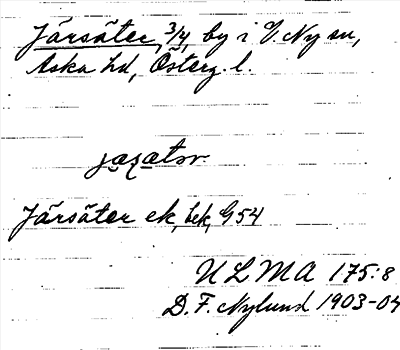 Järsäter, 3/4, by i V. Ny sn,
Aska hd, Österg. l.
jæʀætər
Järsäter ek, bek, G54
ULMA 175:8
D. F. Nylund 1903-04